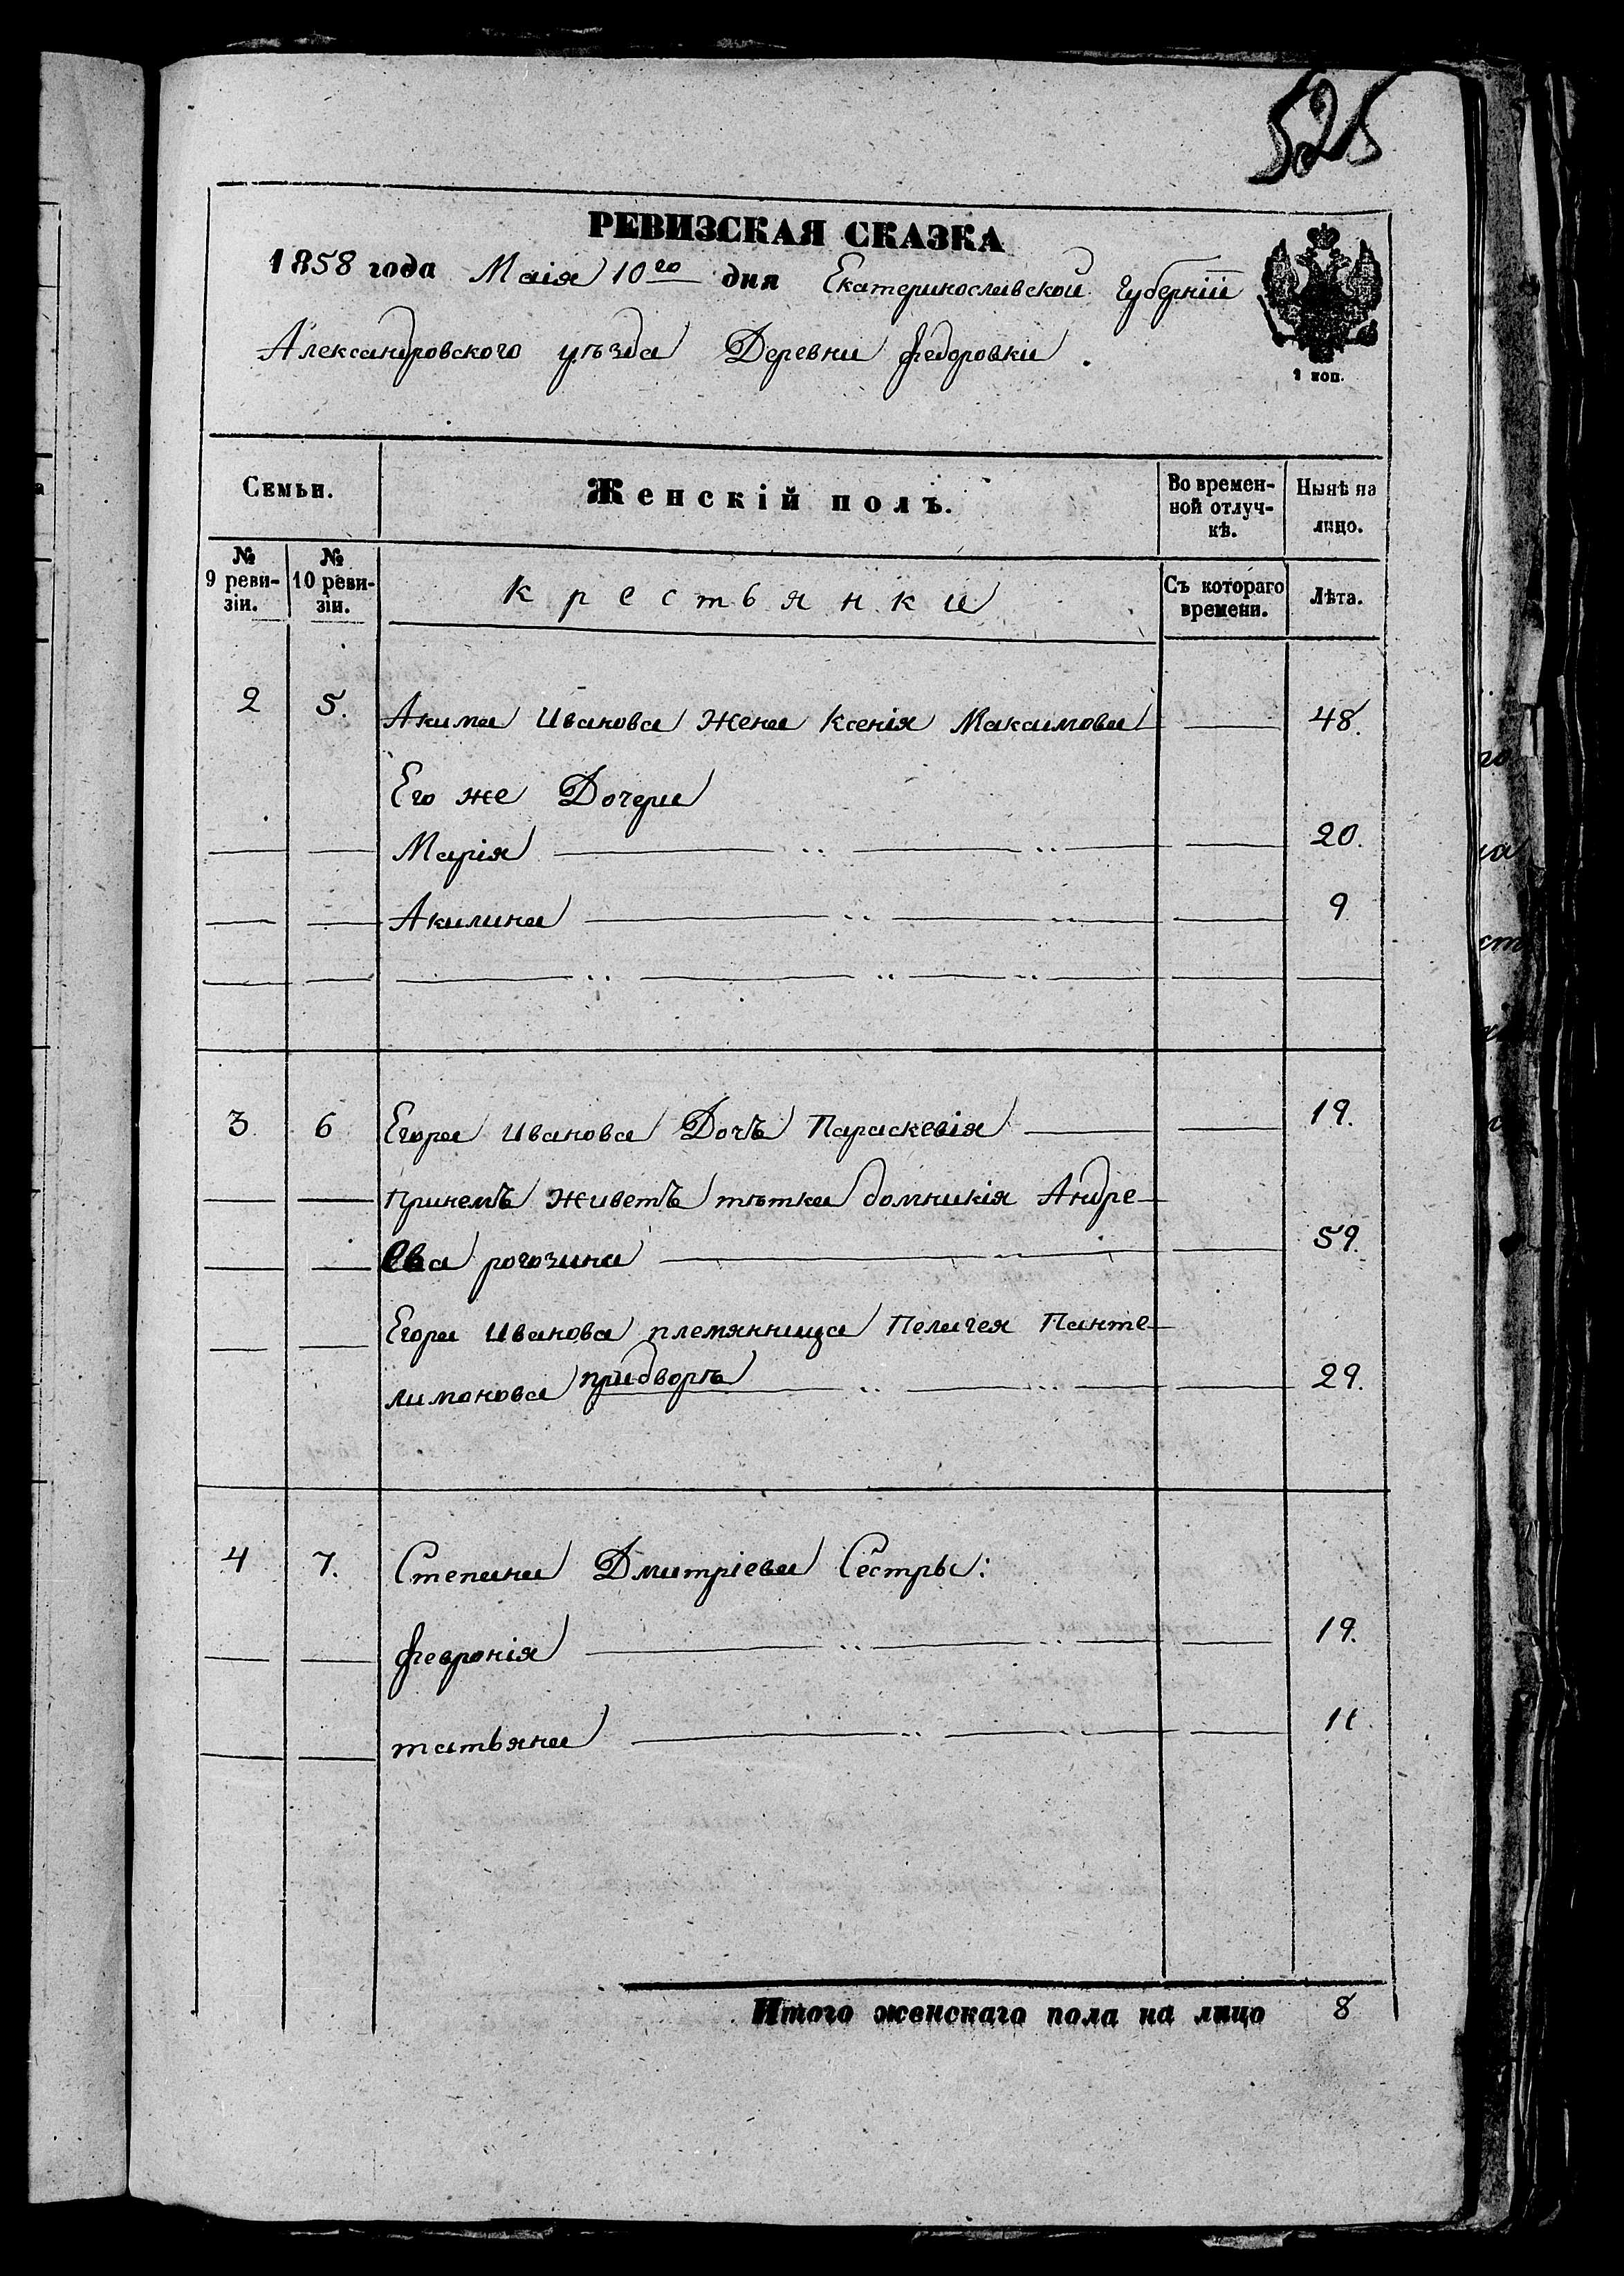 525
РЕВИЗСКАЯ СКАЗКА
1858 года Маія 10го дня Екатеринославской Губерніи
Александровского уѣзда Деревни Федоровки.
1 коп.
Семьи. Женскій полъ. Во времен- Нынѣ на
ной отлуч- лицо.
кѣ.
№ №
9 реви- 10 реви- Крестьянки Съ котораго Лѣта.
зіи. зіи. времени.
2 5. Акима Иванова Жена Ксенія Максимова 48.
Его же Дочери
Марія 20.
Акилина 9
3 6 Егора Иванова Дочь Параскевія 19.
Принемъ живетъ тѣтка домникія Андре-
ева рогозина 59.
Егора Иванова племянница Пелагея Панте-
лимонова придворѣ 29.
4 7. Степана Дмитріева Сестры:
Февронія 19.
татьяна 11.
Итого женскаго пола на лицо 8